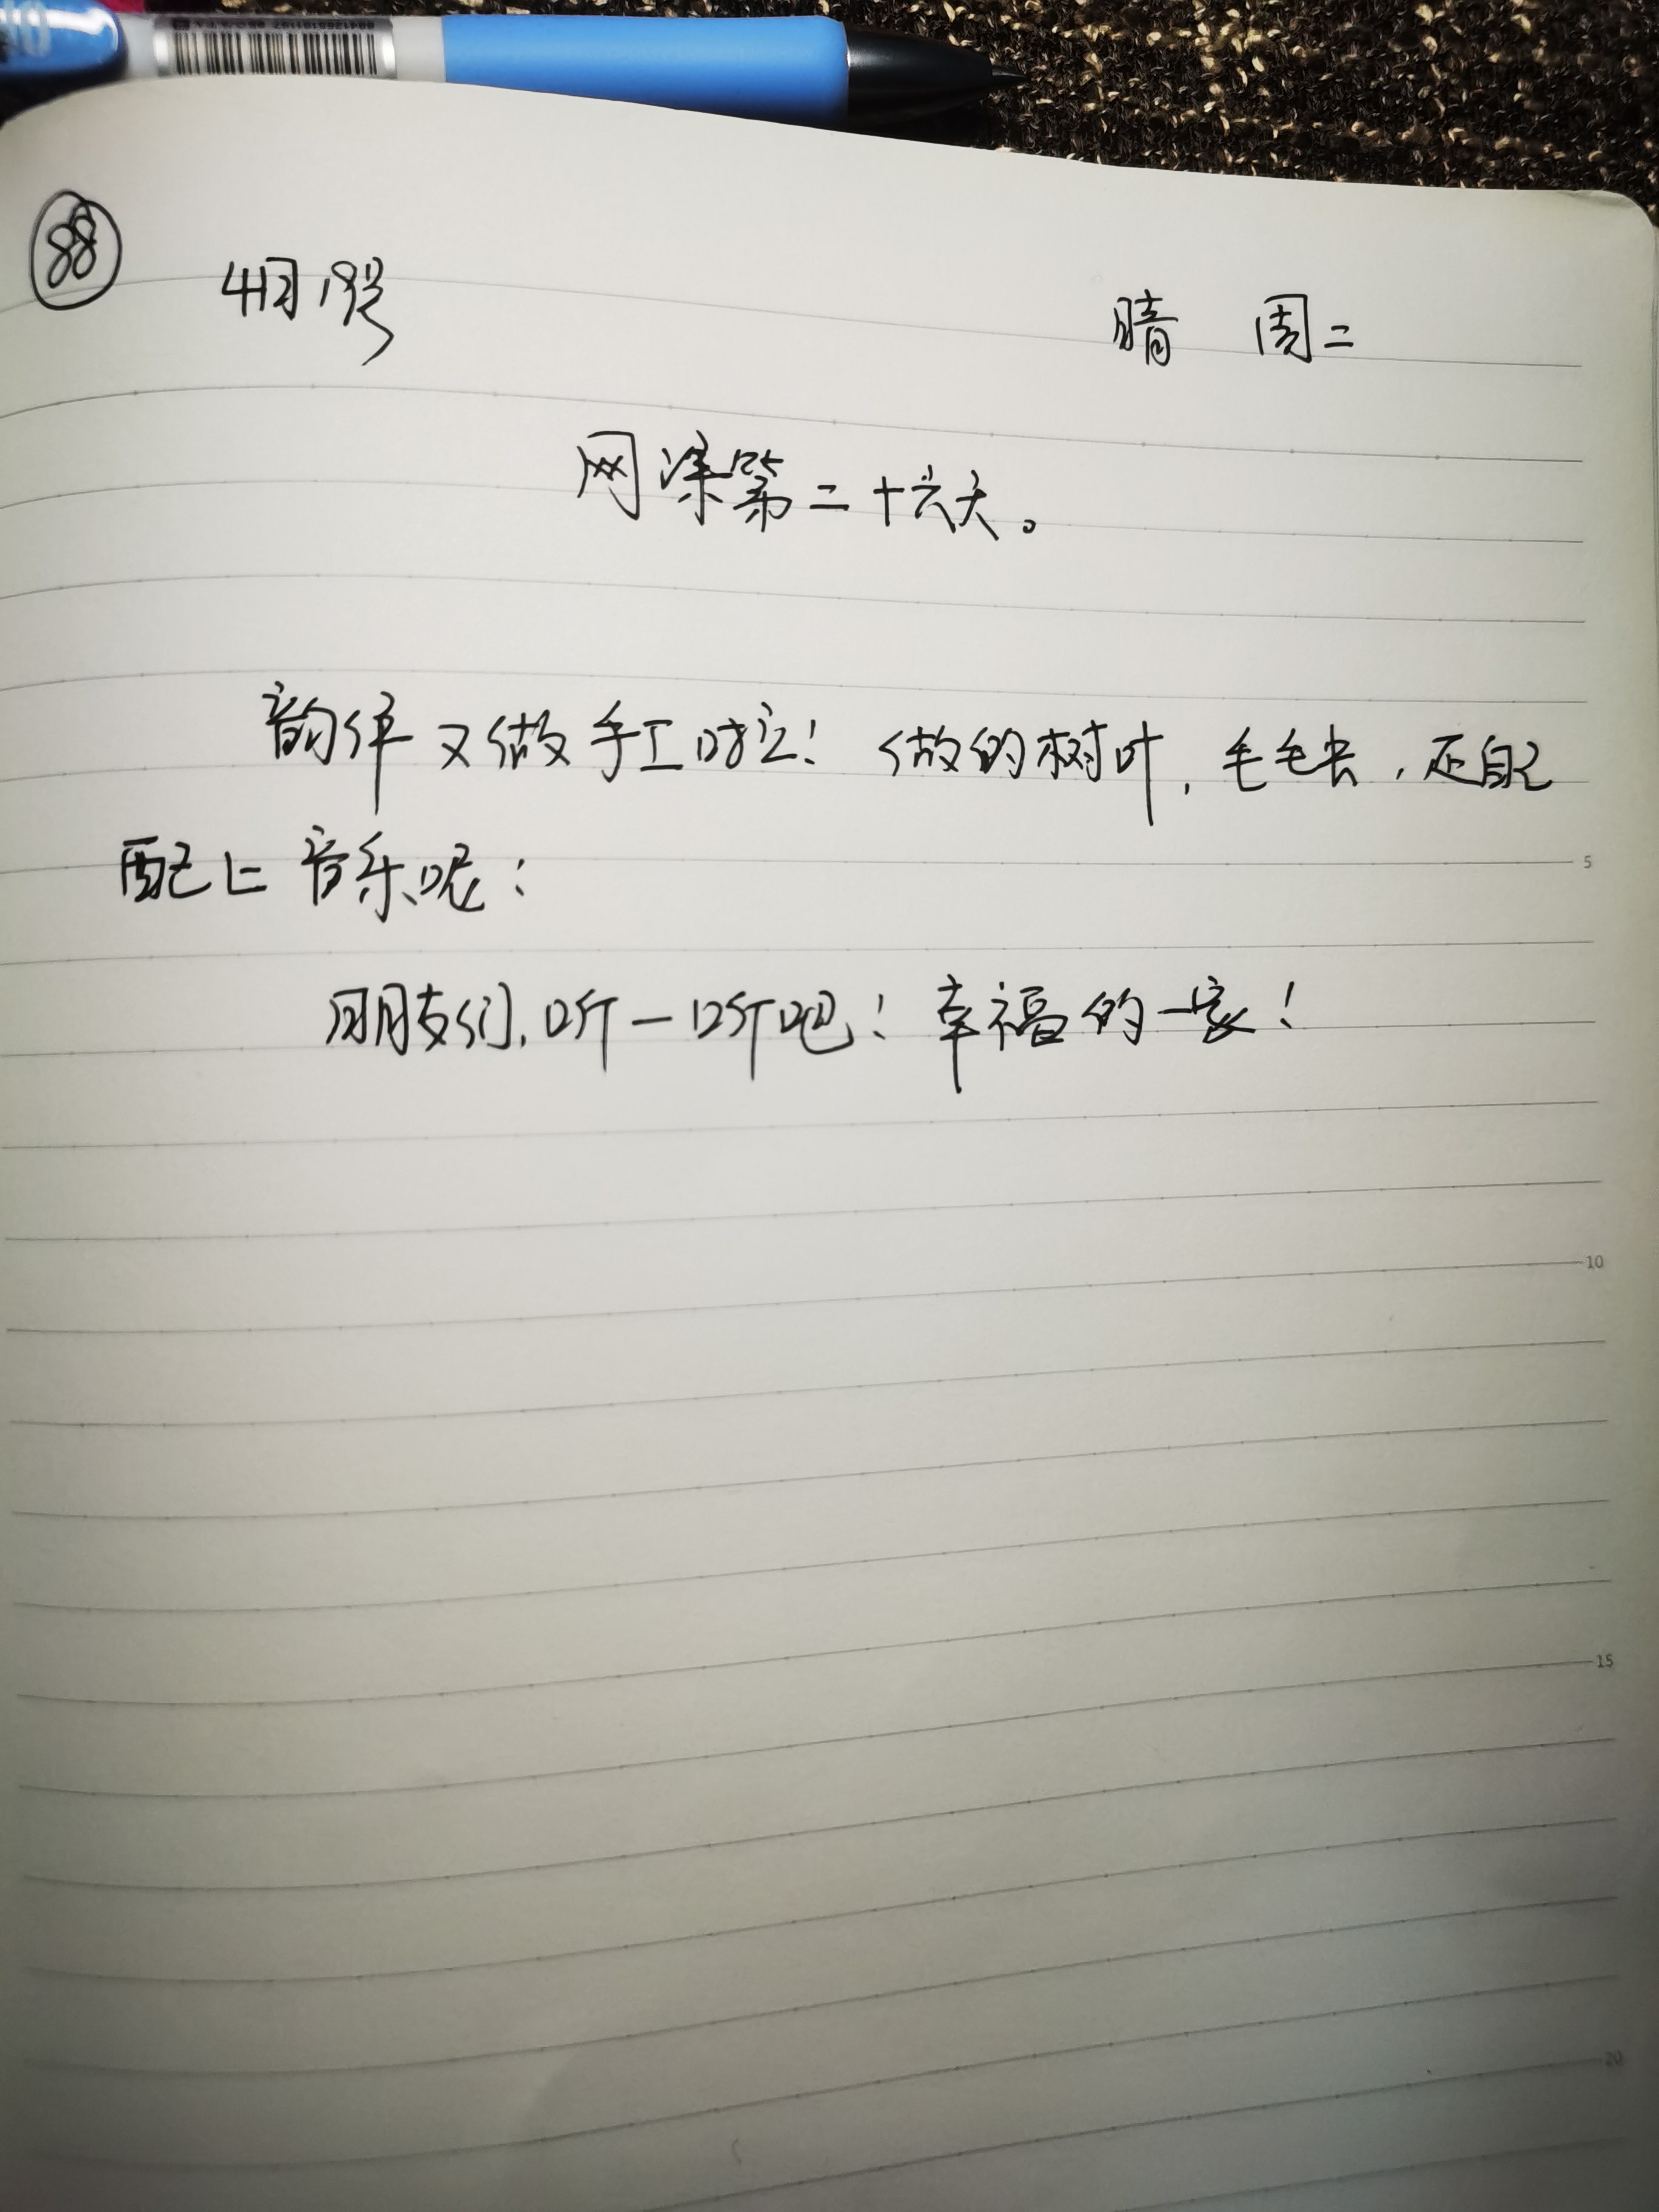 88
4月19号 晴 周二
网课第二十六天。
又做手工呀! 做的树叶,毛毛虫,还自己
5
配上音乐呢!
朋友们,听一听吧!幸福的一家!
10
15
20